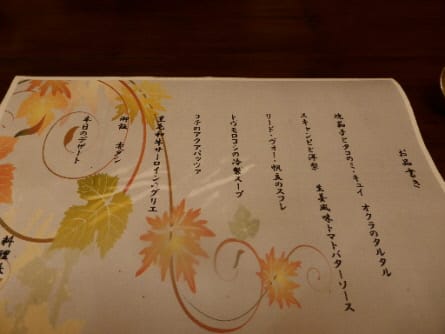 お品書き
焼茄子とタコのミ・キュイ オクラのタルタル
スキャンピと洋梨 生姜風味トマトバターソース
リード・ヴォー・帆立のスフレ
トウモロコシの冷製スープ
コチのアクアパッツァ
黒毛和牛サーロイン・グリエ
御飯 香ダシ
本日のデザート
料理長